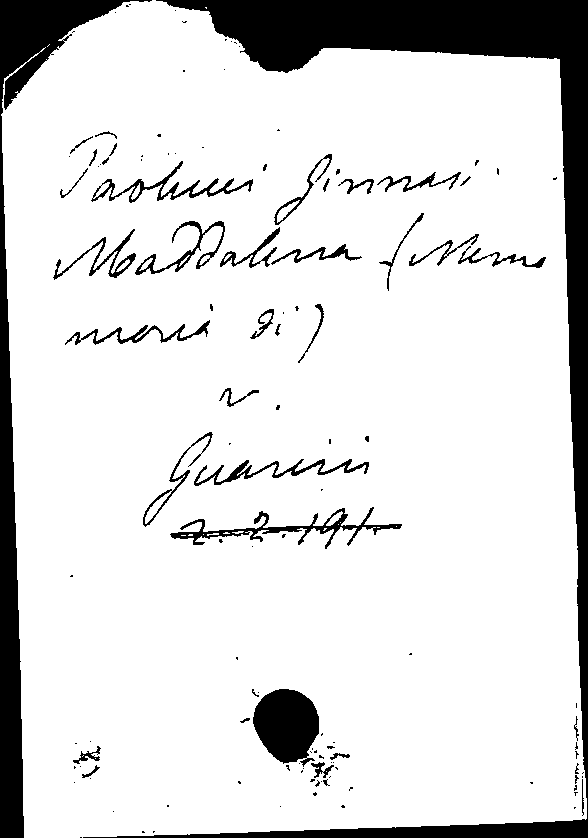 Paolucci Ginnasi
Maddalena (Mem
moria di)
v.
Guarini
2.2.191.